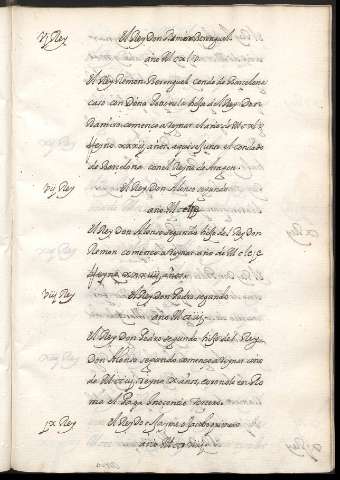 Vj Rey El Rey Don Ramon Berenguel
año M.c xl v.
El Rey Remon Berenguel conde de Barcelona
caso con Doña Patrunila hija del Rey Don
Ramiro, començo a Reynar el año de M.c xl v
Reyno xxxij años, aqui se junto el condado
de Barcelona con el Reyno de Aragon
Vij Rey El Rey Don Alonso segundo
año M.c
El Rey Don Alonso segundo hijo del Rey Don
Remon començo a Reynar año de M.c
Reyno xxxiiij años
Viij Rey El Rey Don Pedro segundo
año
El Rey Don Pedro segundo hijo del Rey
Don Alonso segundo començo a Reynar año
de Reyno x años, corono le en Ro
ma el Papa Inocentio tercero.
jx Rey El Rey Don Jayme
año